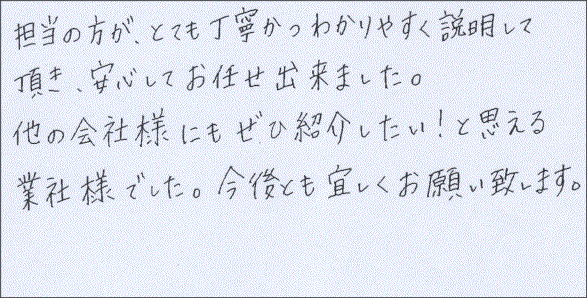 担当の方が、とても丁寧かつわかりやすく説明して
頂き、安心してお任せ出来ました。
他の会社様にもぜひ紹介したい！と思える
業社様でした。今後とも宜しくお願い致します。